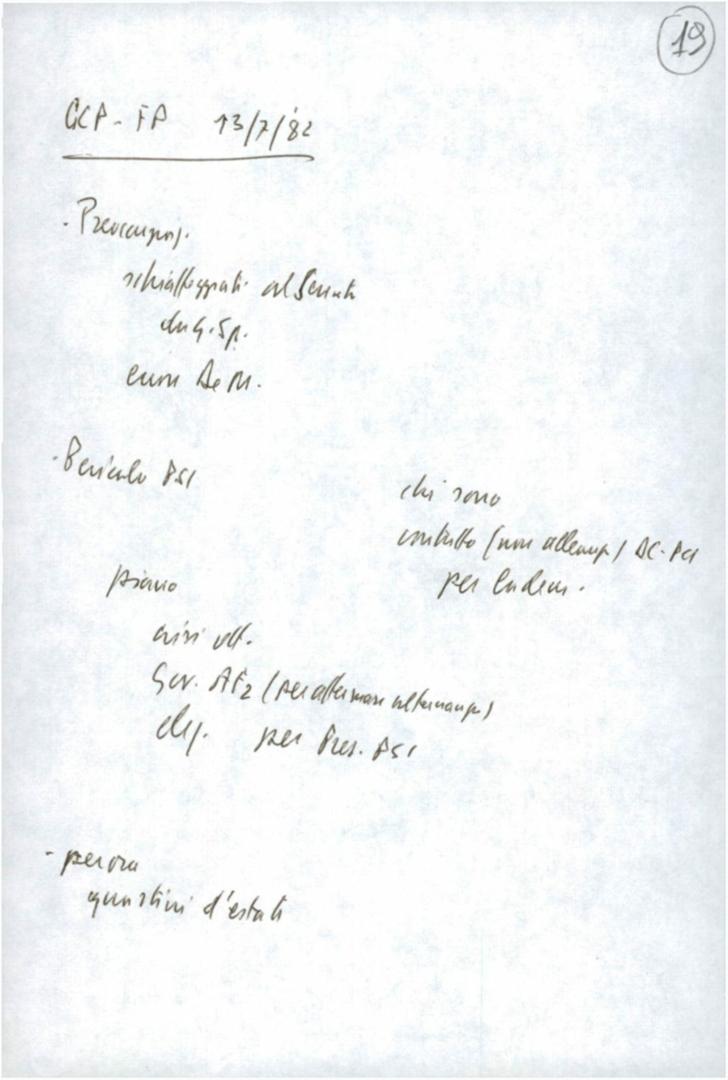 19
GCP - FP 13/7/'82
- Preoccupaz.
schiaffeggiati al Senato
da G. Sp.
De M.
- Pericolo PSI
chi sono
contatto (non alleanza) DC-PCI
per
piano
crisi ott.
Gov. AF2 (per affermare alternanza)
elez. per Pres. PSI
- per ora
d'estate